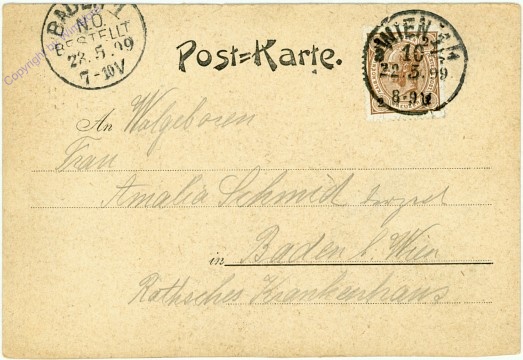 BADEN
N.Ö.
BESTELLT
23.5.99
7-10V
Copyright by
Post=Karte.
WIEN
22.5.99
An Wolgeboren
Frau
Amalia Schmid
in Baden b. Wien
Rathsches Krankenhaus